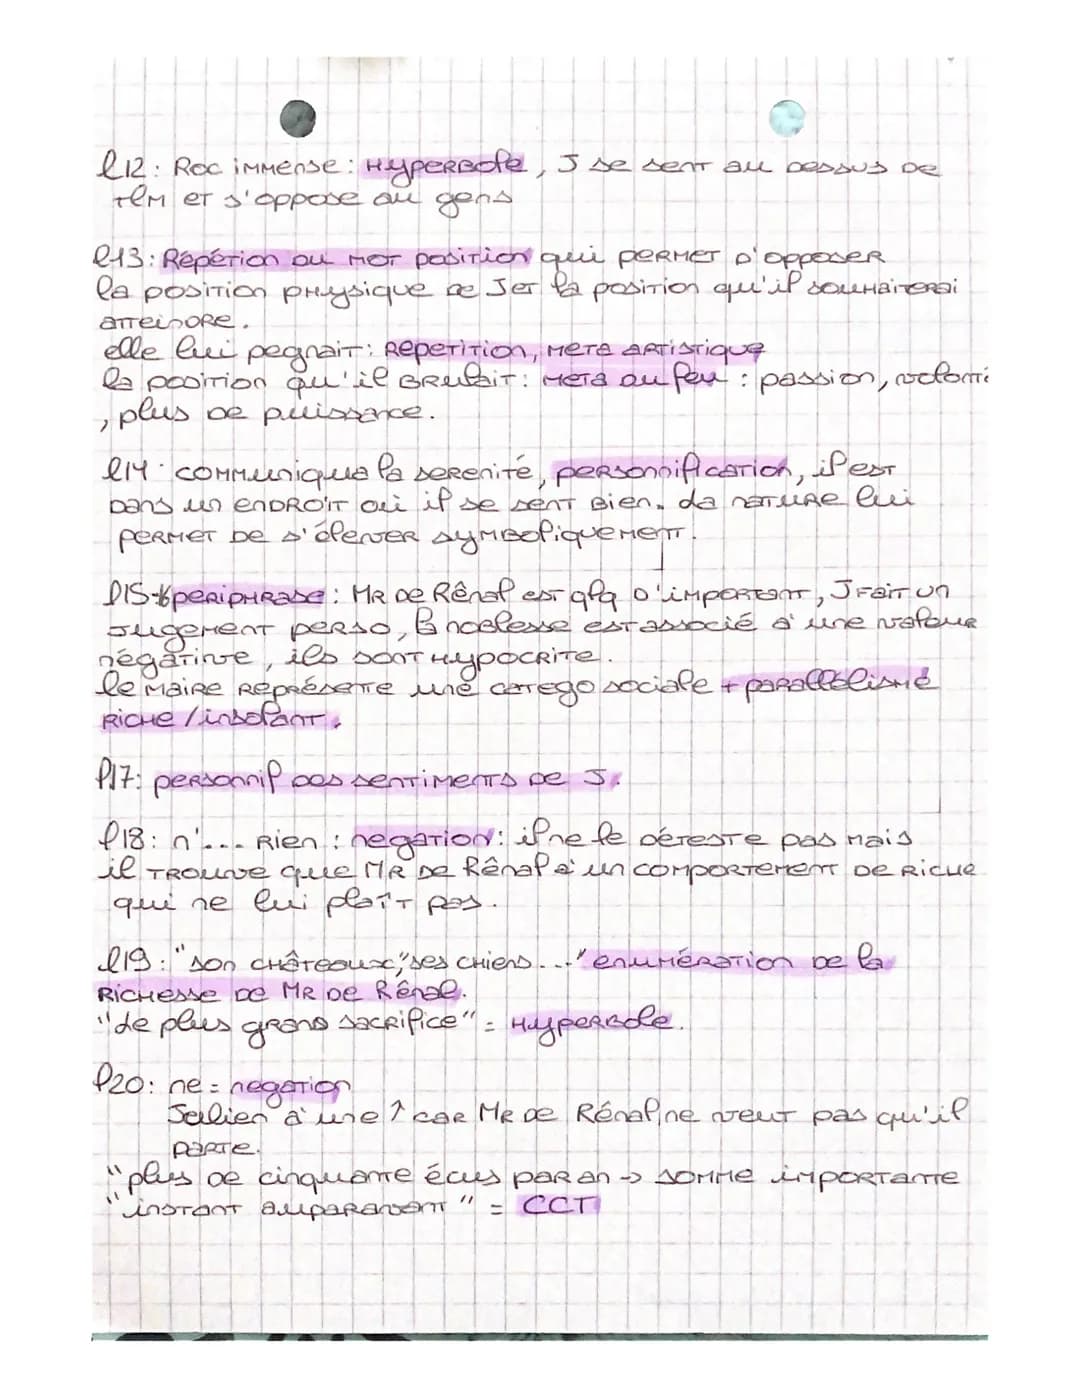 l12 : Roc immense : Hyperbole, J se sent au dessus de
tlm et s'oppose au gens
l13 : Répétion du mot position qui permet d'opposer
la position physique de J et la position qu'il souhaiterai
atteindre.
elle lui pegnait : Repetition, meta artistique
la position qu'il brulait : meta du feu : passion, volonté
, plus de puissance.
l14 : communiqua la serenité, personnification, il est
dans un endroit où il se sent bien. La nature lui
permet de s'élever symboliquement.
l15-16 periphrase : Mr de Rênal est qlq d'important, J fait un
jugement perso, la noblesse est associé à une valeur
négative, ils sont hypocrite.
le maire représente une catego sociale + parallélisme
riche / insolant.
l17 : personnif des sentiments de J.
l18 : n'... rien : negation : il ne le déteste pas mais
il trouve que Mr de Rênal à un comportement de riche
qui ne lui plaît pas.
l19 : "son châteaux, ses chiens..." énumération de la
richesse de Mr de Rênal.
"de plus grand sacrifice" = Hyperbole.
l20 : ne = negation
Julien à une ↑ car Mr de Rénal ne veut pas qu'il
parte.
"plus de cinquante écus par an → somme importante
"instant auparavant" = CCT